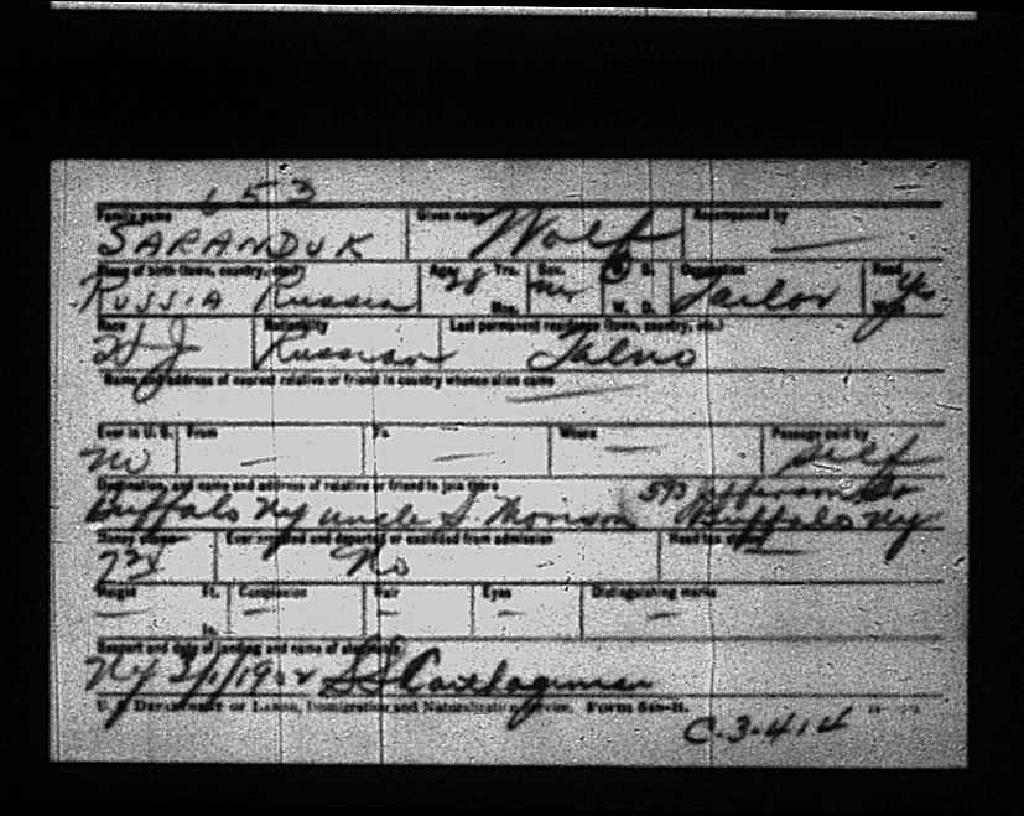 653
Family name Given name Accompanied by
SARANDUK Wolf —
Place of birth (town, country, etc.) Age Yrs. Sex S. Occupation Read
Russia Russia 28 Mos. W. D. Tailor Yes
Race Nationality Last permanent residence (town, country, etc.)
Russian Talno
Name and address of nearest relative or friend in country whence alien came
—
Ever in U. S. From To Where Passage paid by
no — — — self
Destination, and name and address of relative or friend to join there
Buffalo Ny uncle S. 593 Jefferson St Buffalo Ny
Money shown Ever arrested and deported or excluded from admission Head tax
No —
Height Ft. Complexion Hair Eyes Distinguishing marks
— — — — —
In.
Seaport and date of landing and name of steamship
Ny SS Carthaginian
U. S. Department of Labor, Immigration and Naturalization Service. Form
C-3-414